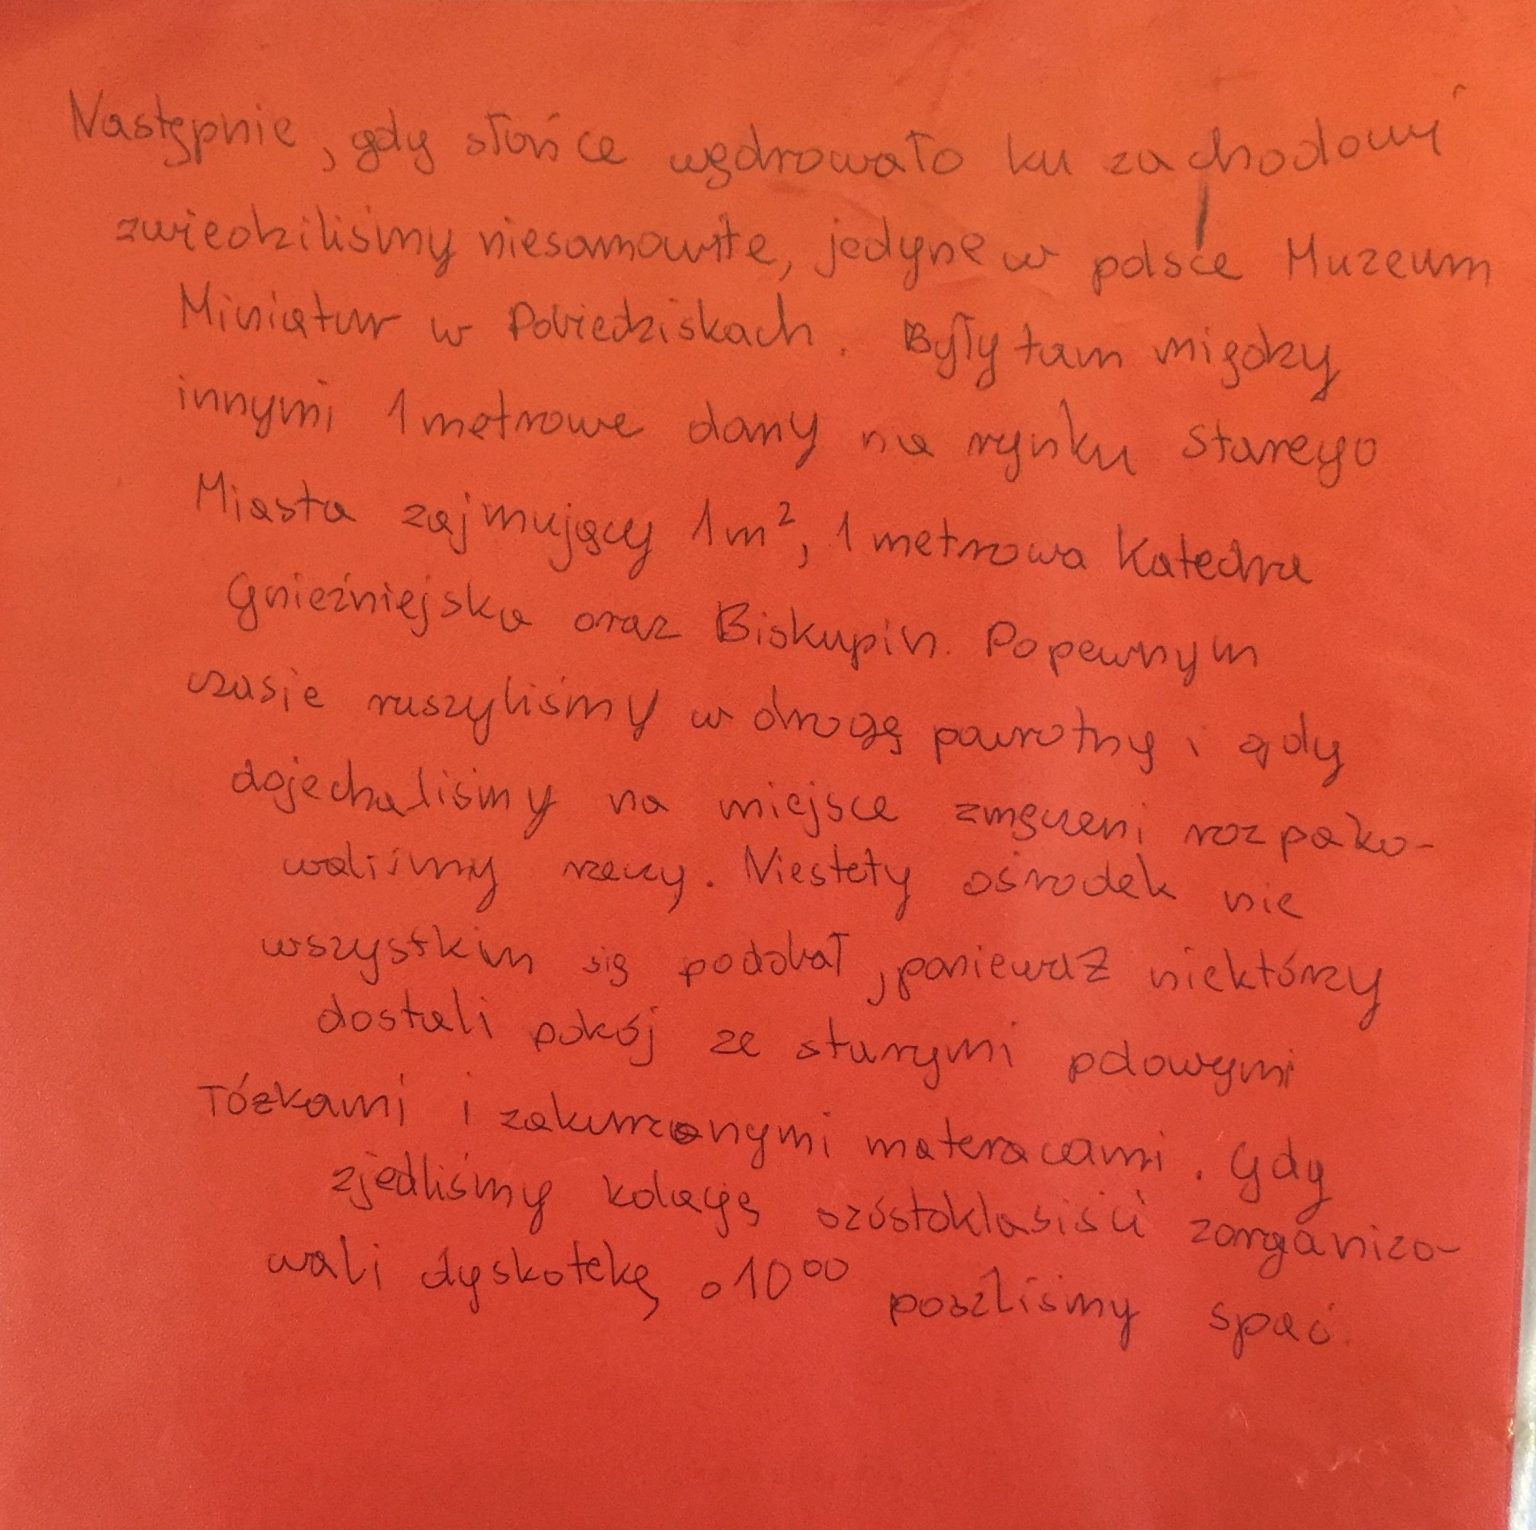 Następnie, gdy słońce wędrowało ku zachodowi
zwiedziliśmy niesamowite, jedyne w polsce Muzeum
Miniatur w Pobiedziskach. Były tam między
innymi 1 metrowe domy na rynku Starego
Miasta zajmujący 1m², 1 metrowa Katedra
Gnieźniejska oraz Biskupin. Po pewnym
czasie ruszyliśmy w drogę powrotny i gdy
dojechaliśmy na miejsce zmęczeni rozpako-
waliśmy rzeczy. Niestety ośrodek nie
wszystkim się podobał, ponieważ niektórzy
dostali pokój ze starymi polowymi
łózkami i zakurzonymi materacami. Gdy
zjedliśmy kolację szóstoklasiści zorganizo-
wali dyskotekę, o 10⁰⁰ poszliśmy spać.